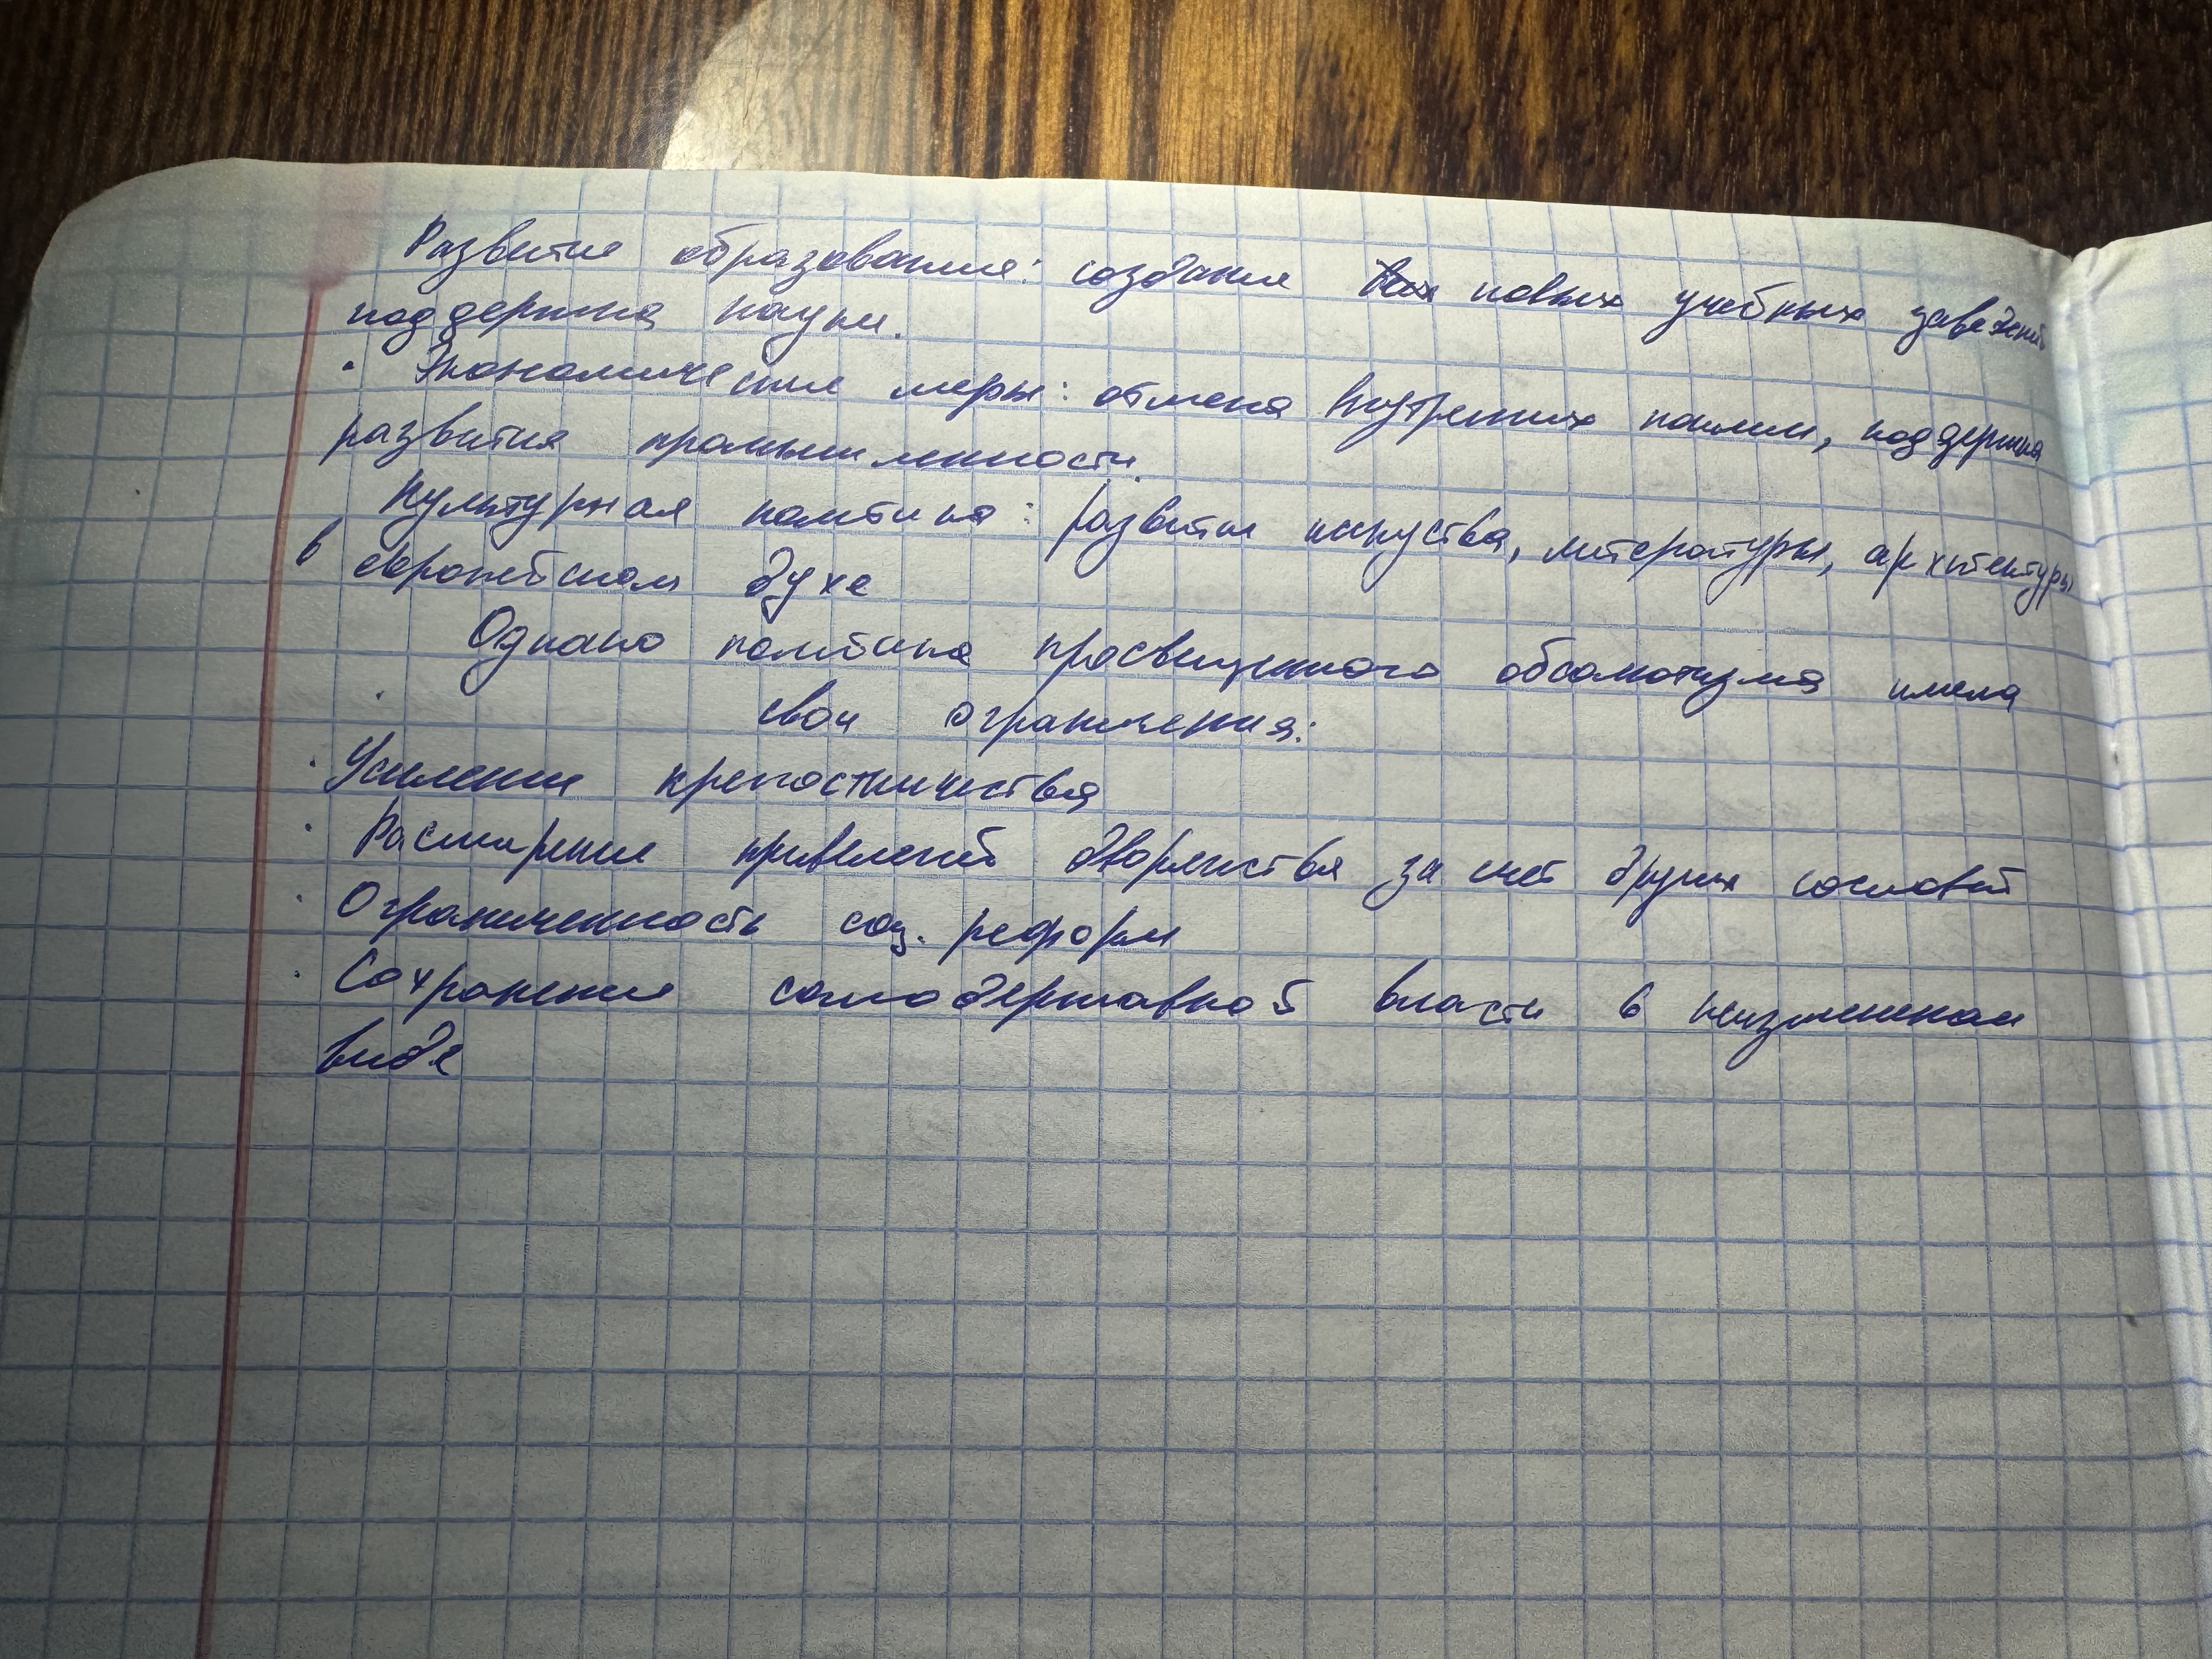 Развитие образования: создание новых учебных заведений
поддержка науки.
· Экономические меры: отмена внутренних пошлин, поддержка
развития промышленности.
Культурная политика: развитие искуства, литературы, архитектуры
в европейском духе
Однако политика просвещенного абсолютизма имела
свои ограничения:
· Усиление крепостничества
· Расширение привелегий дворянства за счет других сословий
· Ограниченность соц. реформ
· Сохранение самодержавной власти в неизменном
виде